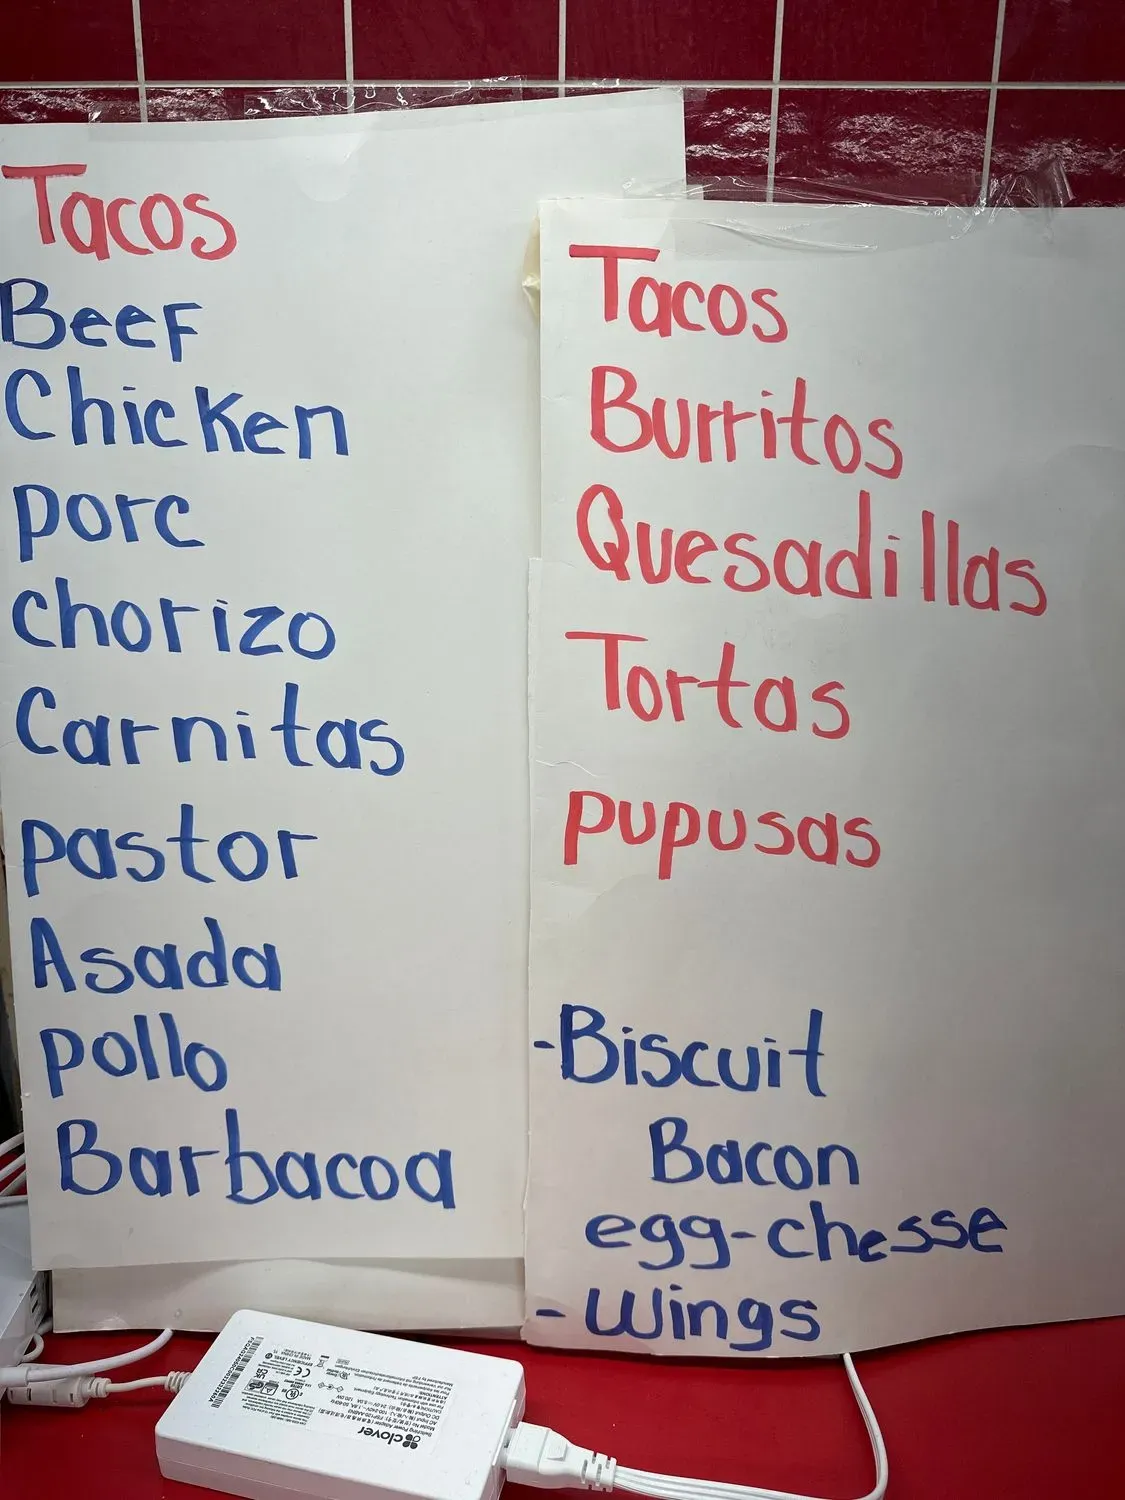 Tacos
Beef
Chicken
porc
chorizo
Carnitas
pastor
Asada
pollo
Barbacoa
Tacos
Burritos
Quesadillas
Tortas
pupusas
-Biscuit
Bacon
egg-chesse
-Wings
clover